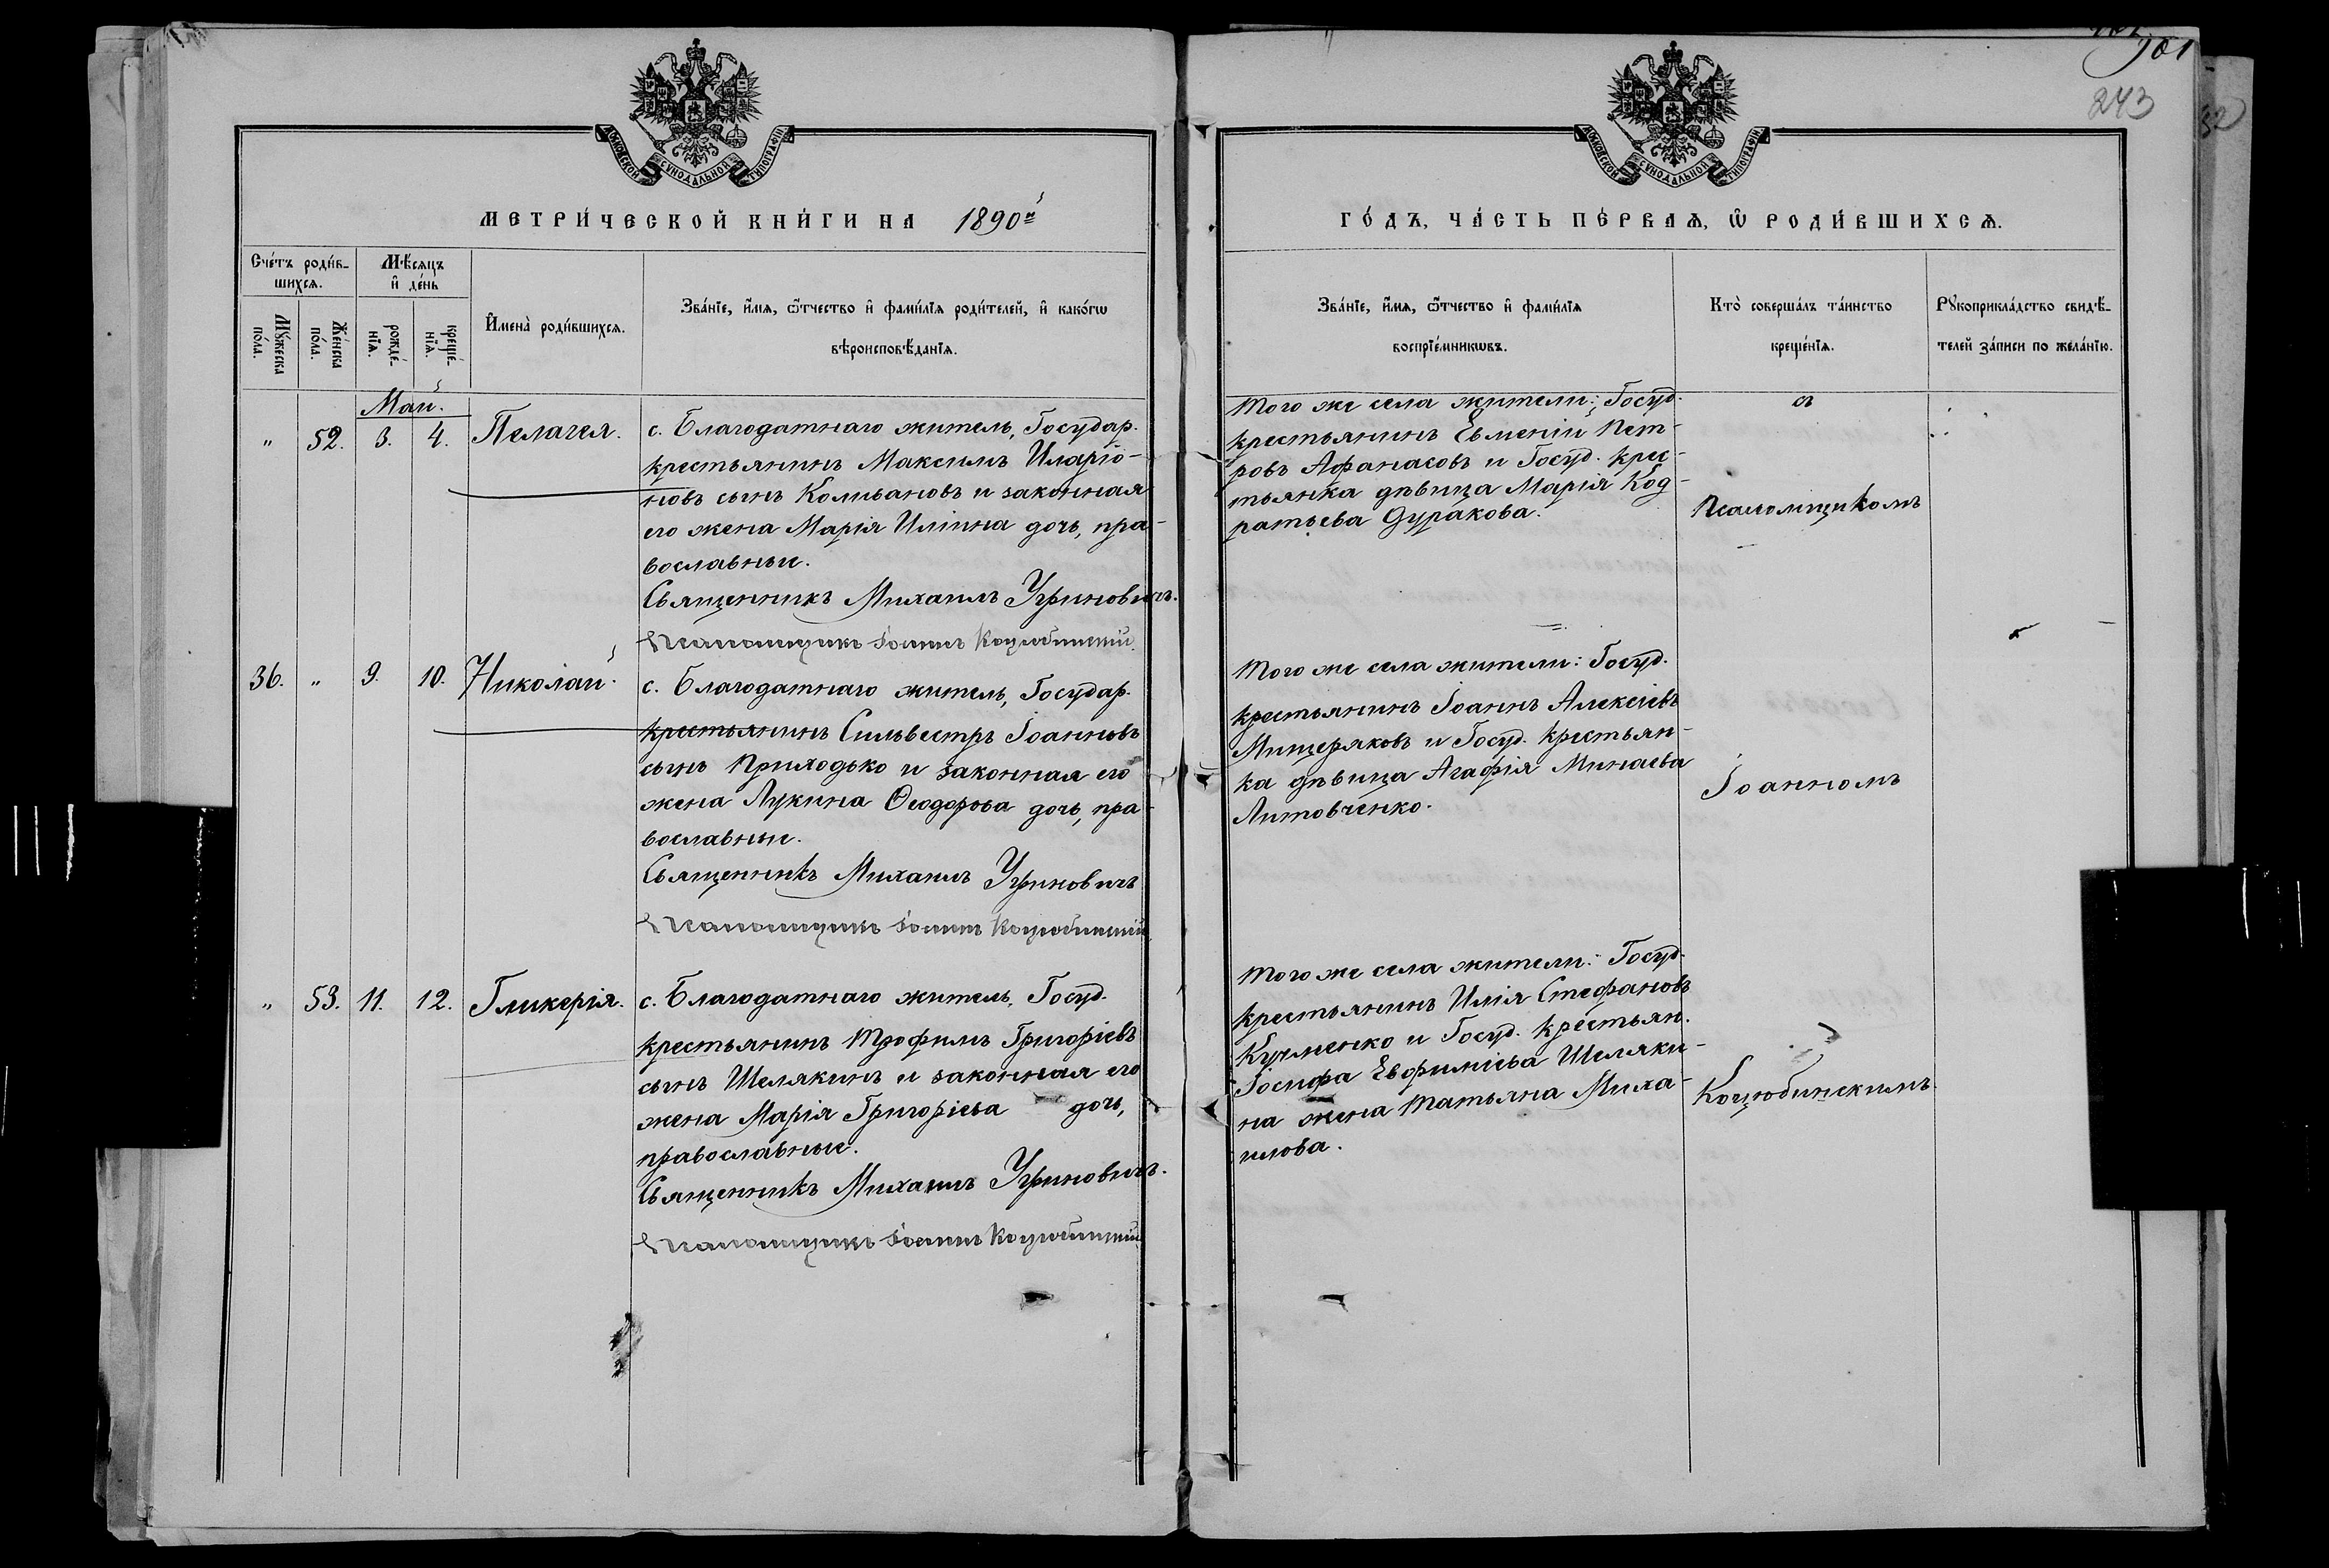 МОСКОВСКОЙ СУНОДАЛЬНОЙ ТИПОГРАФІИ
МЕТРИ́ЧЕСКОЙ КНИ́ГИ НА 1890й
Сче́тъ роди́в-
шихсѧ.
Мѣ́сѧцъ
и҆ де́нь
Мꙋ́жеска
по́ла.
Же́нска
по́ла.
рожде́-
нїѧ.
креще́-
нїѧ.
И҆мена̀ роди́вшихсѧ.
Зва́нїе, и҆́мѧ, ѻ҆́тчество и҆ фами́лїѧ роди́телей, и҆ како́гѡ
вѣроисповѣ́данїѧ.
Май.
" 52. 3. 4. Пелагея.
с. Благодатнаго житель, Государ.
крестьянинъ Максимъ Иларіо-
новъ сынъ Коливановъ и законная
его жена Марія Иліина дочь, пра-
вославные.
Священникъ Михаилъ Угриновичъ.
Псаломщикъ Іоаннъ Коцюбинскій.
36. " 9. 10. Николай.
с. Благодатнаго житель, Государ.
крестьянинъ Сильвестръ Іоанновъ
сынъ Приходько и законная его
жена Лукина Ѳеодорова дочь, пра-
вославные.
Священникъ Михаилъ Угриновичъ
Псаломщикъ Іоаннъ Коцюбинскій
" 53. 11. 12. Гликерія.
с. Благодатнаго житель, Госуд.
крестьянинъ Трофимъ Григоріевъ
сынъ Шелякинъ и законная его
жена Марія Григоріева дочь,
православные.
Священникъ Михаилъ Угриновичъ.
Псаломщикъ Іоаннъ Коцюбинскій
101
243
32
МОСКОВСКОЙ СУНОДАЛЬНОЙ ТИПОГРАФІИ
ГО́ДЪ, ЧА́СТЬ ПЕ́РВАѦ, Ѡ҆ РОДИ́ВШИХСѦ.
Зва́нїе, и҆́мѧ, ѻ҆́тчество и҆ фами́лїѧ
воспрїе́мникѡвъ.
Кто̀ соверша́лъ та́инство
креще́нїѧ.
Рꙋкоприкла́дство свидѣ́-
телей за́писи по жела́нїю.
Того же села жители: Госуд.
крестьянинъ Евменій Пет-
ровъ Афанасовъ и Госуд. крес-
тьянка дѣвица Марія Код-
ратьева Дуракова.
съ
Псаломщикомъ
Того же села жители: Госуд.
крестьянинъ Іоаннъ Алексіевъ
Мищеряковъ и Госуд. крестьян-
ка дѣвица Агафія Минаева
Литовченко.
Іоанномъ
Того же села жители: Госуд.
крестьянинъ Илія Стефановъ
Кучменко и Госуд. крестьян.
Іосифа Евфиміева Шеляки-
на жена Татьяна Миха-
илова.
Коцюбинскимъ